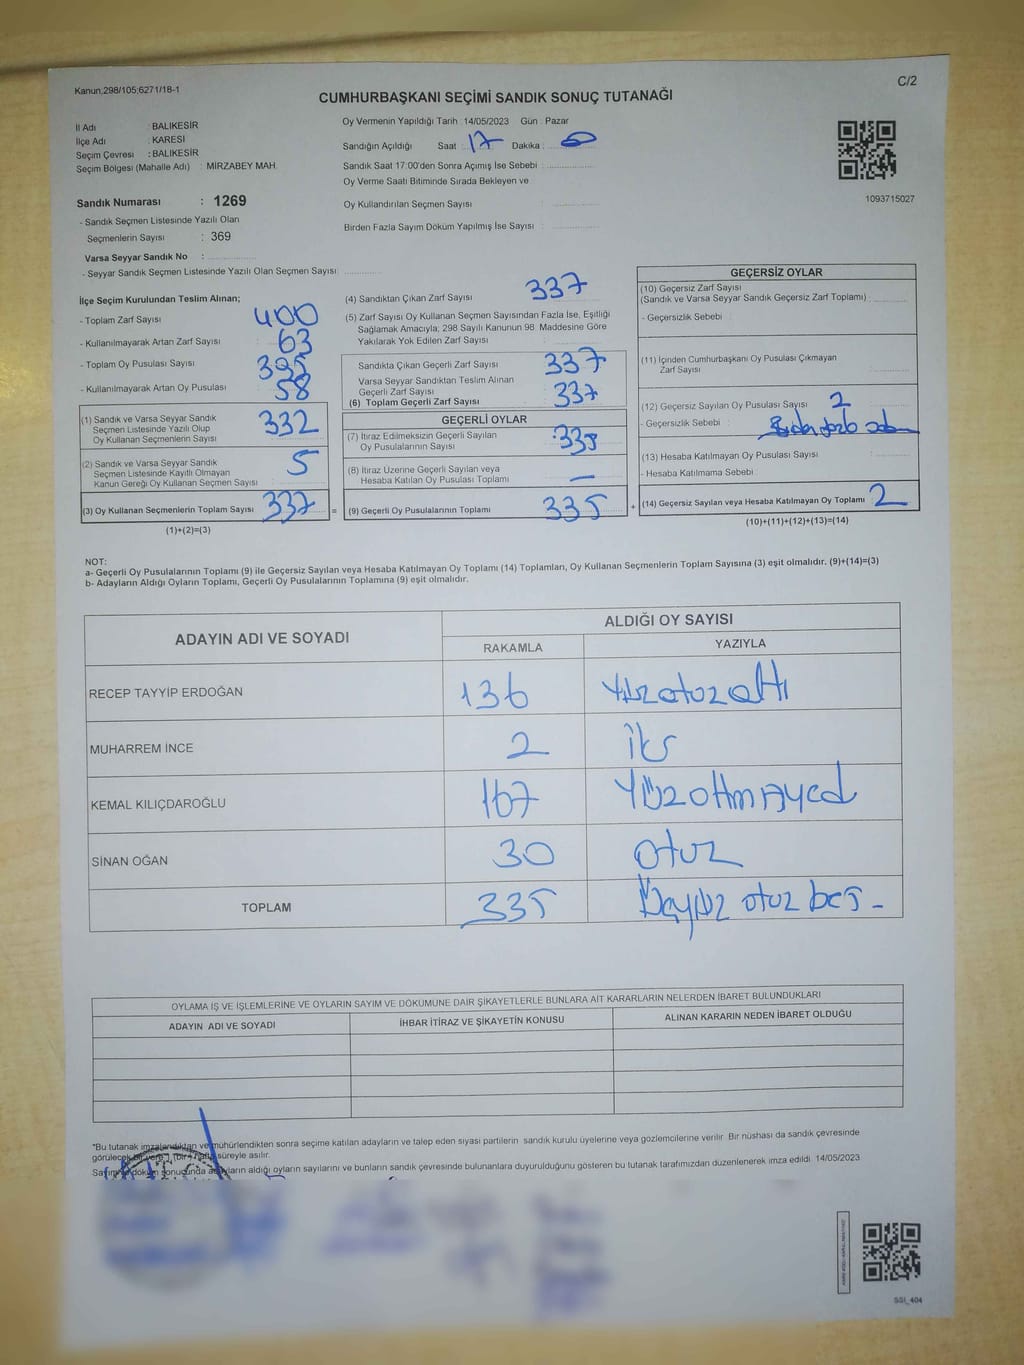 Kanun.298/105;6271/18-1
C/2
CUMHURBAŞKANI SEÇİMİ SANDIK SONUÇ TUTANAĞI
İl Adı : BALIKESİR
İlçe Adı : KARESİ
Seçim Çevresi : BALIKESİR
Seçim Bölgesi (Mahalle Adı) : MİRZABEY MAH.
Oy Vermenin Yapıldığı Tarih : 14/05/2023 Gün : Pazar
Sandığın Açıldığı Saat : 17 Dakika : 0
Sandık Saat 17:00'den Sonra Açımış İse Sebebi :
Oy Verme Saati Bitiminde Sırada Bekleyen ve
Oy Kullandırılan Seçmen Sayısı :
Birden Fazla Sayım Döküm Yapılmış İse Sayısı :
1093715027
Sandık Numarası : 1269
- Sandık Seçmen Listesinde Yazılı Olan
Seçmenlerin Sayısı : 369
Varsa Seyyar Sandık No :
- Seyyar Sandık Seçmen Listesinde Yazılı Olan Seçmen Sayısı :
İlçe Seçim Kurulundan Teslim Alınan;
- Toplam Zarf Sayısı : 400
- Kullanılmayarak Artan Zarf Sayısı : 63
- Toplam Oy Pusulası Sayısı : 395
- Kullanılmayarak Artan Oy Pusulası : 58
(1) Sandık ve Varsa Seyyar Sandık
Seçmen Listesinde Yazılı Olup
Oy Kullanan Seçmenlerin Sayısı : 332
(2) Sandık ve Varsa Seyyar Sandık
Seçmen Listesinde Kayıtlı Olmayan
Kanun Gereği Oy Kullanan Seçmen Sayısı : 5
(3) Oy Kullanan Seçmenlerin Toplam Sayısı : 337
(1)+(2)=(3)
=
(4) Sandıktan Çıkan Zarf Sayısı : 337
(5) Zarf Sayısı Oy Kullanan Seçmen Sayısından Fazla İse, Eşitliği
Sağlamak Amacıyla, 298 Sayılı Kanunun 98. Maddesine Göre
Yakılarak Yok Edilen Zarf Sayısı :
Sandıkta Çıkan Geçerli Zarf Sayısı : 337
Varsa Seyyar Sandıktan Teslim Alınan
Geçerli Zarf Sayısı
(6) Toplam Geçerli Zarf Sayısı : 337
GEÇERLİ OYLAR
(7) İtiraz Edilmeksizin Geçerli Sayılan
Oy Pusulalarının Toplamı : 335
(8) İtiraz Üzerine Geçerli Sayılan veya
Hesaba Katılan Oy Pusulası Toplamı : —
(9) Geçerli Oy Pusulalarının Toplamı : 335
+
GEÇERSİZ OYLAR
(10) Geçersiz Zarf Sayısı
(Sandık ve Varsa Seyyar Sandık Geçersiz Zarf Toplamı) :
- Geçersizlik Sebebi :
(11) İçinden Cumhurbaşkanı Oy Pusulası Çıkmayan
Zarf Sayısı :
(12) Geçersiz Sayılan Oy Pusulası Sayısı : 2
- Geçersizlik Sebebi :
(13) Hesaba Katılmayan Oy Pusulası Sayısı :
- Hesaba Katılmama Sebebi :
(14) Geçersiz Sayılan veya Hesaba Katılmayan Oy Toplamı : 2
(10)+(11)+(12)+(13)=(14)
NOT:
a- Geçerli Oy Pusulalarının Toplamı (9) ile Geçersiz Sayılan veya Hesaba Katılmayan Oy Toplamı (14) Toplamları, Oy Kullanan Seçmenlerin Toplam Sayısına (3) eşit olmalıdır. (9)+(14)=(3)
b- Adayların Aldığı Oyların Toplamı, Geçerli Oy Pusulalarının Toplamına (9) eşit olmalıdır.
ADAYIN ADI VE SOYADI
ALDIĞI OY SAYISI
RAKAMLA YAZIYLA
RECEP TAYYİP ERDOĞAN 136 Yüzotuzaltı
MUHARREM İNCE 2 iki
KEMAL KILIÇDAROĞLU 167 Yüzaltmışyedi
SİNAN OĞAN 30 otuz
TOPLAM 335 Üçyüz otuz beş -
OYLAMA İŞ VE İŞLEMLERİNE VE OYLARIN SAYIM VE DÖKÜMÜNE DAİR ŞİKAYETLERLE BUNLARA AİT KARARLARIN NELERDEN İBARET BULUNDUKLARI
ADAYIN ADI VE SOYADI İHBAR İTİRAZ VE ŞİKAYETİN KONUSU ALINAN KARARIN NEDEN İBARET OLDUĞU
*Bu tutanak imzalandıktan ve mühürlendikten sonra seçime katılan adayların ve talep eden siyasi partilerin sandık kurulu üyelerine veya gözlemcilerine verilir. Bir nüshası da sandık çevresinde
görülecek bir yere 1 (bir) hafta süreyle asılır.
Sayım ve döküm sonucunda adayların aldığı oyların sayılarını ve bunların sandık çevresinde bulunanlara duyurulduğunu gösteren bu tutanak tarafımızdan düzenlenerek imza edildi. 14/05/2023
SSİ_404